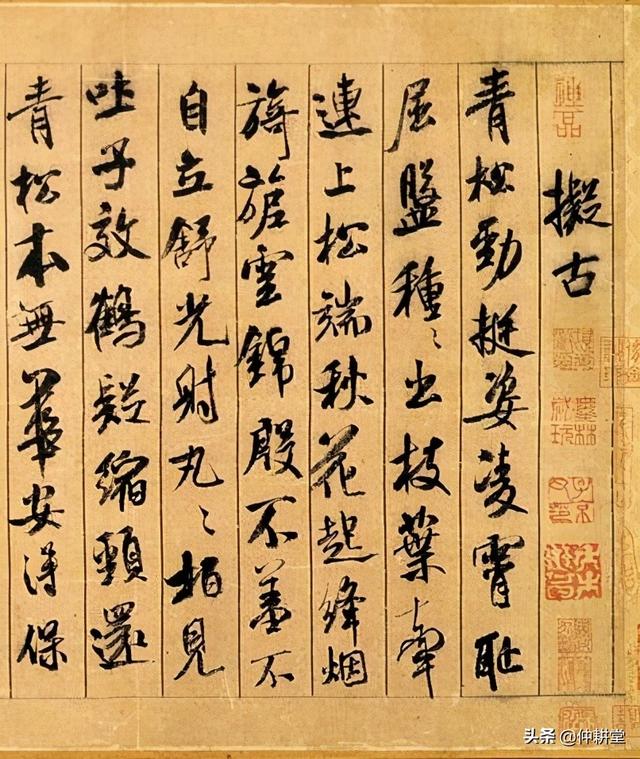 神品
擬古
青松勁挺姿凌霄恥
屈盤種〻出枝葉牽
連上松端秋花起絳烟
旖旎雲錦殷不羞不
自立舒光射丸〻柏見
吐子效鶴疑縮頸還
青松本無華安得保
头条 @仲耕堂